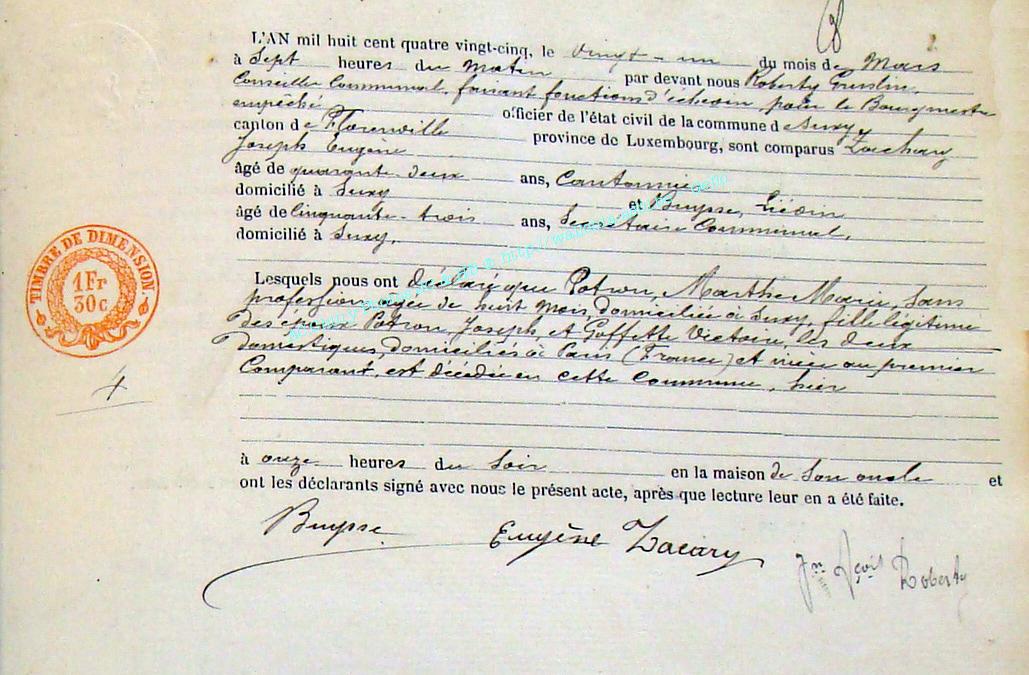 L'AN mil huit cent quatre vingt-cinq, le vingt-un du mois de Mars
à Sept heures du matin par devant nous Roberty
Conseiller Communal, faisant fonctions d'échevin, pour le Bourgmestre
empêché officier de l'état civil de la commune de Suxy,
canton de Florenville province de Luxembourg, sont comparus Zachary
Joseph Eugène
âgé de quarante-deux ans, Cantonnier
domicilié à Suxy et Buysse,
âgé de Cinquante-trois ans, Secrétaire Communal,
domicilié à Suxy,
TIMBRE DE DIMENSION
1 Fr
30 c
Lesquels nous ont déclaré que Potron, Marthe Marie, Sans
profession, âgée de huit mois, domiciliée à Suxy, fille légitime
des époux Potron, Joseph, et Goffette Victoire, les deux
domestiques, domiciliés à Paris (France) et nièce au premier
Comparant, est décédée en cette Commune, hier
à onze heures du Soir en la maison de Son oncle et
ont les déclarants signé avec nous le présent acte, après que lecture leur en a été faite.
Buysse Eugène Zacary Roberty